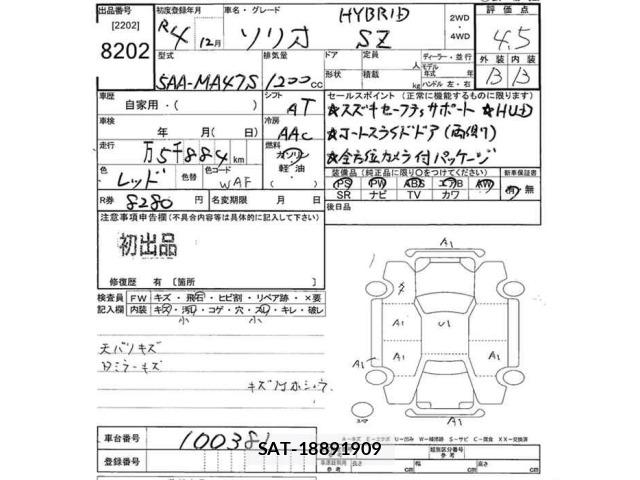 出品番号 初度登録年月 車名・グレード 2WD・4WD 評価点
[2202] R4 12月 ソリオ HYBRID SZ 4.5
8202 型式 排気量 ドア 定員 ディーラー・並行 外装 内装
5AA-MA47S 1200cc 形状 積載 kg モデル年式 年 ハンドル 左・右 B B
車歴 自家用・( ) シフト AT セールスポイント (正常に機能するものに限ります)
車検 年 月( 日) 冷房 AAC ★スズキセーフティサポート ★HUD
走行 万5千884km 燃料 ガソリン・軽油・ ★オートスライドドア(両側)
★全方位カメラ付パッケージ
色 レッド 色替 色コード WAF 装備品 (純正品に限り○をつけてください) 新車保証書
PS PW ABS エアB AW 有・無
SR ナビ TV カワ
R券 8280円 名変期限 月 日 後日品
注意事項申告欄(不具合内容等は具体的に記入して下さい)
初出品
修復歴 有 [箇所 ]
検査員記入欄 FW キズ・飛石・ヒビ割・リペア跡・×要
内装 キズ・汚れ・コゲ・穴・スレ・キレ・破レ
小 小
天バリキズ
日ミラーキズ
A1
A1 U1
A1 A1
A1
A1
車台番号 100381
登録番号
A-キズ E-エクボ U-凹み W-補修跡 S-サビ C-腐食 XX-交換済
SAT-18891909
長さ cm 幅 cm 高さ cm